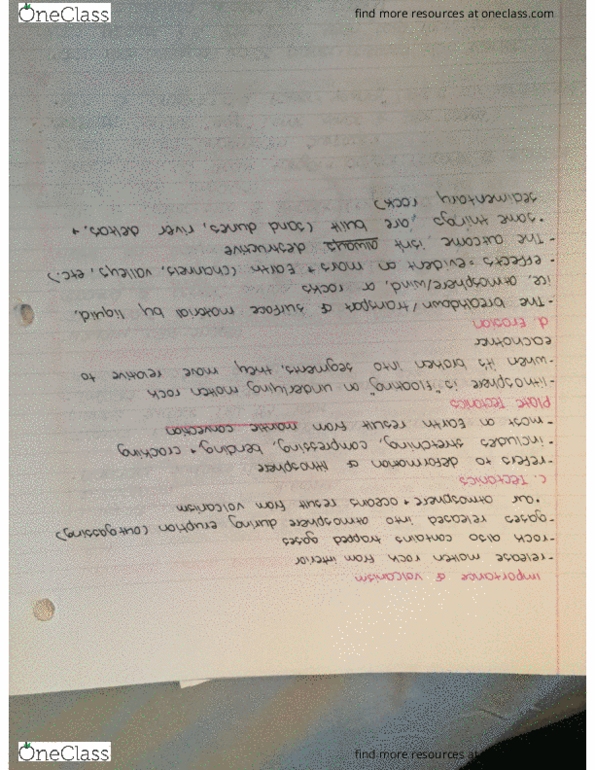 OneClass
find more resources at oneclass.com
importance of volcanism
- release molten rock from interior
- rock also contains trapped gases
- gases released into atmosphere during eruption (outgassing)
• our atmosphere + oceans result from volcanism
c. Tectonics
- refers to deformation of lithosphere
- includes stretching, compressing, bending + cracking
- most on Earth result from mantle convection
Plate Tectonics
- lithosphere is "floating" on underlying molten rock
- when it's broken into segments, they move relative to
eachother
d. Erosion
- The breakdown / transport of surface material by liquid,
ice, atmosphere/wind, or rocks
- effects evident on mars + Earth (channels, valleys, etc)
- The outcome isn't always destructive
• some things are built (sand dunes, river deltas, +
sedimentary rock)
OneClass
find more resources at